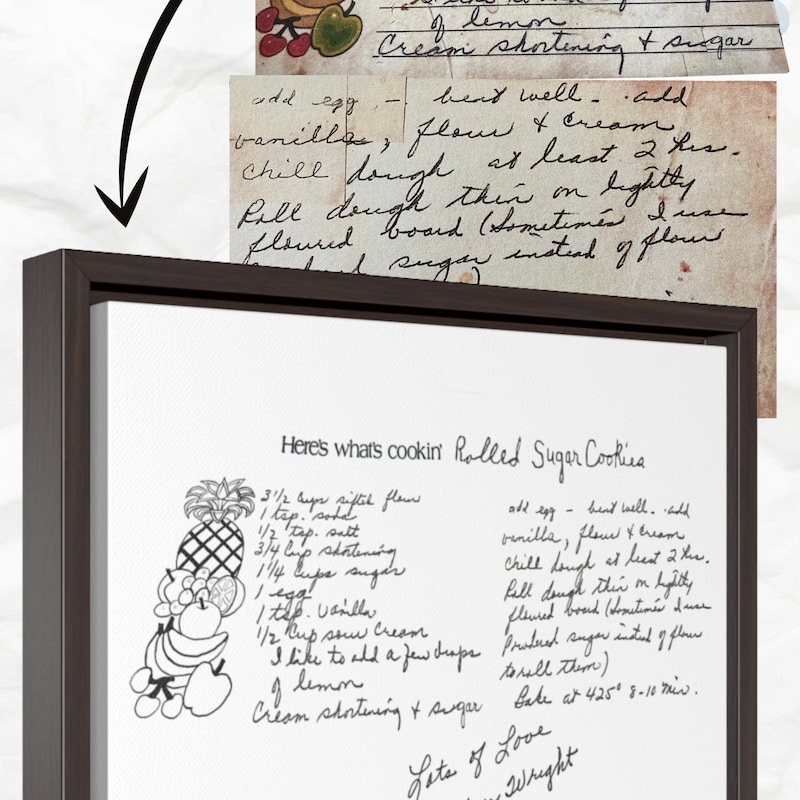 of lemon
Cream shortening & sugar
add egg - beat well - add
vanilla, flour & cream
Chill dough at least 2 hrs.
Roll dough thin on lightly
floured board (Sometimes I use
sugar instead of flour
Here's what's cookin' Rolled Sugar Cookies
3 1/2 Cups sifted flour
1 tsp. soda
1/2 tsp. salt
3/4 Cup shortening
1 1/4 Cups sugar
1 egg
1 tsp. Vanilla
1/2 Cup sour Cream
I like to add a few drops
of lemon
Cream shortening & sugar
add egg - beat well - add
vanilla, flour & cream
Chill dough at least 2 hrs.
Roll dough thin on lightly
floured board (Sometimes I use
Powdered sugar instead of flour
to roll them)
Bake at 425° 8-10 Min.
Lots of Love
Wright